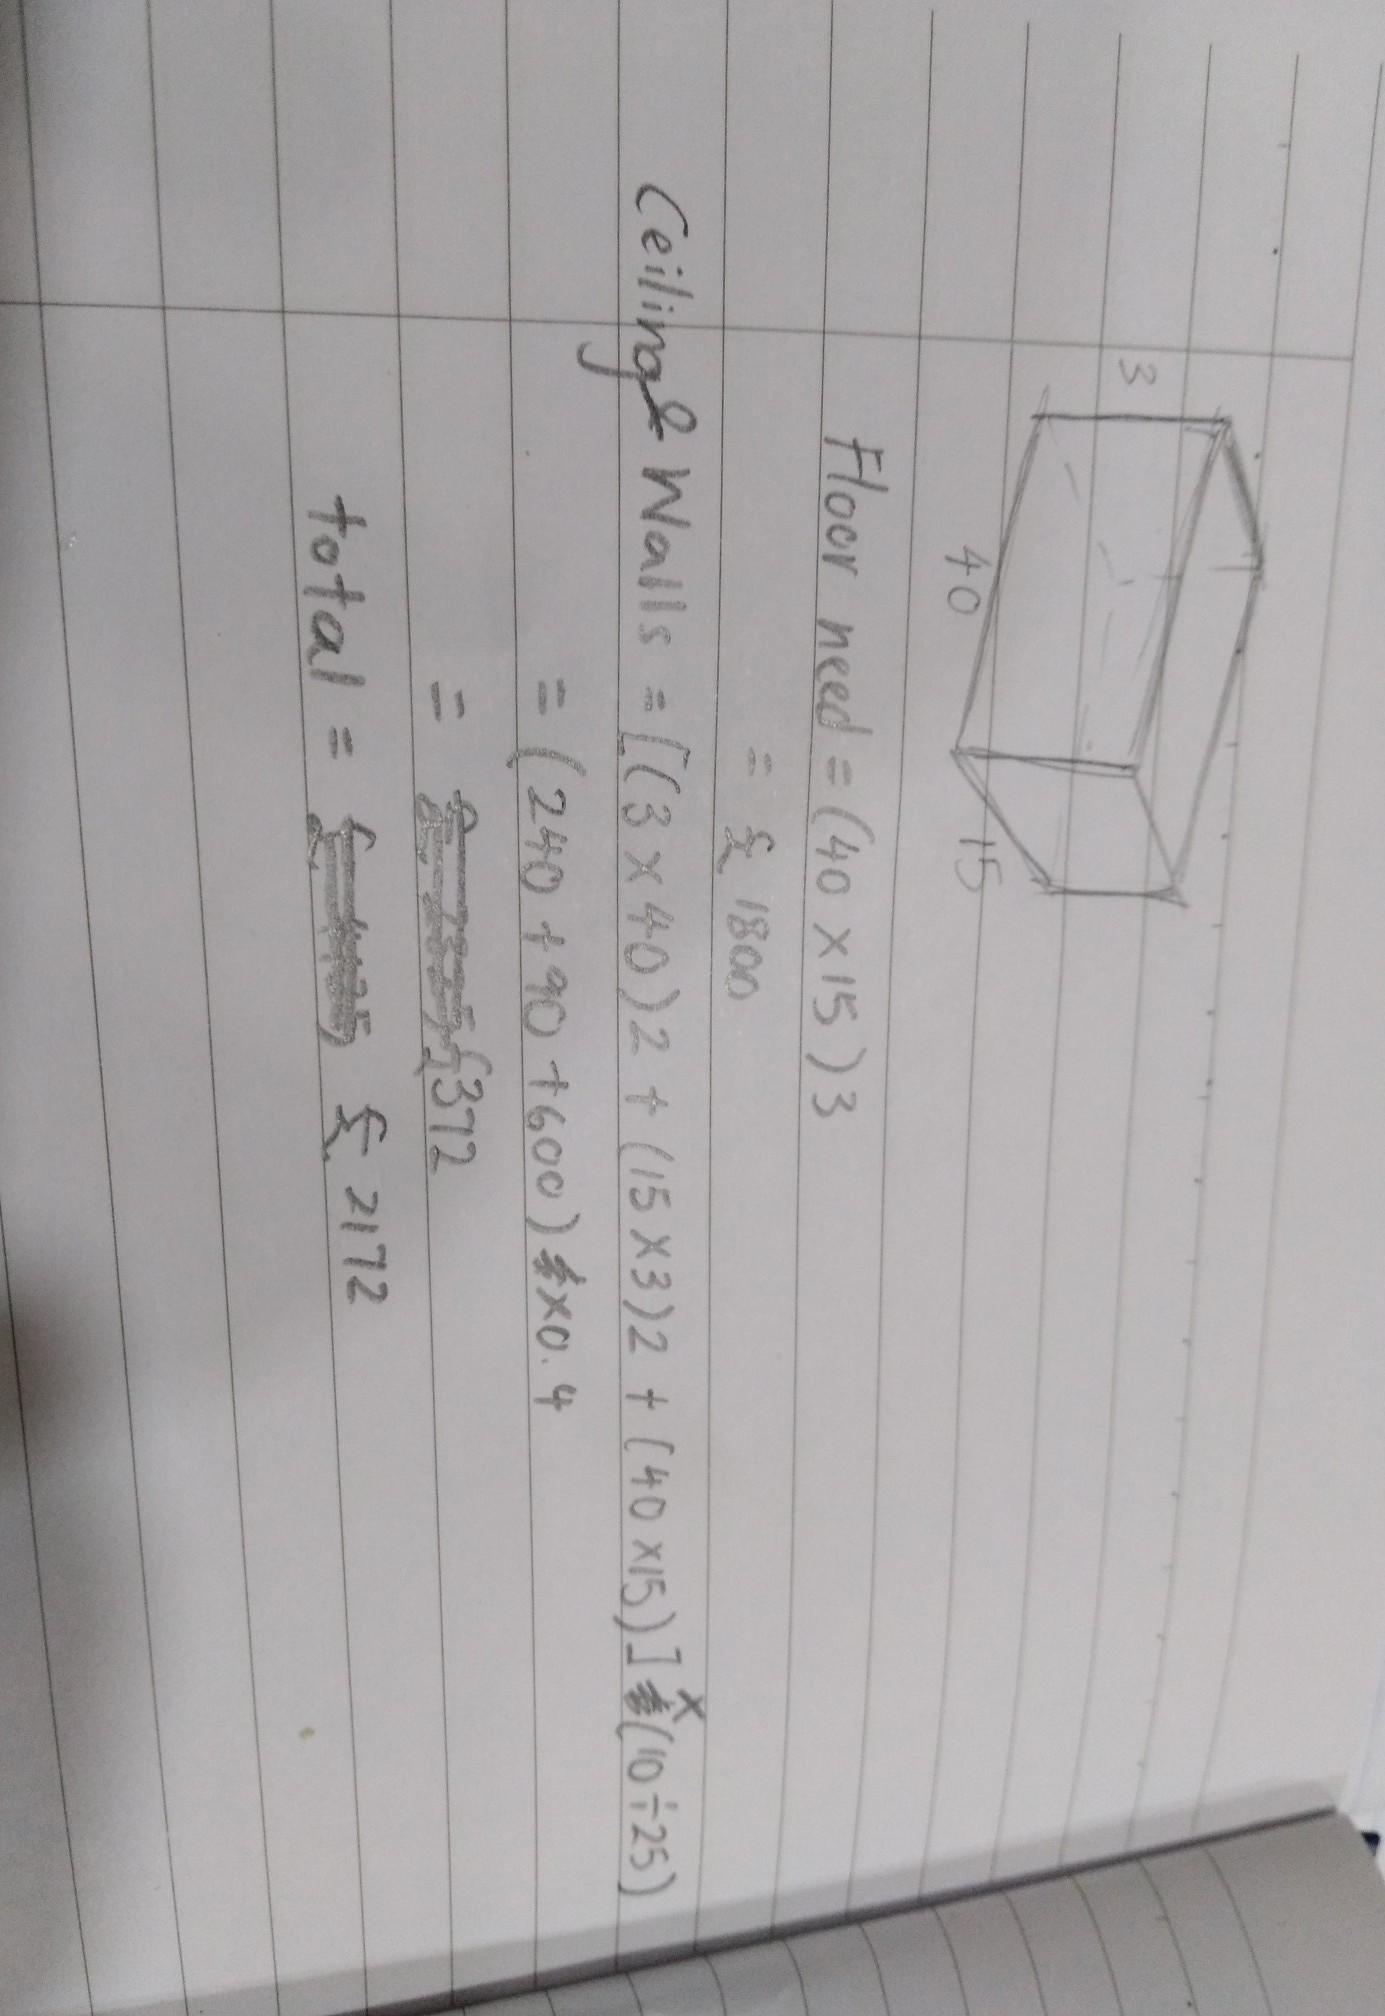 3
40
15
Floor need = (40 × 15) 3
= £ 1800
Ceiling & Walls = [(3 × 40)2 + (15 × 3)2 + (40 × 15)] × (10 ÷ 25)
= (240 + 90 + 600) × 0.4
= £372
total = £ 2172